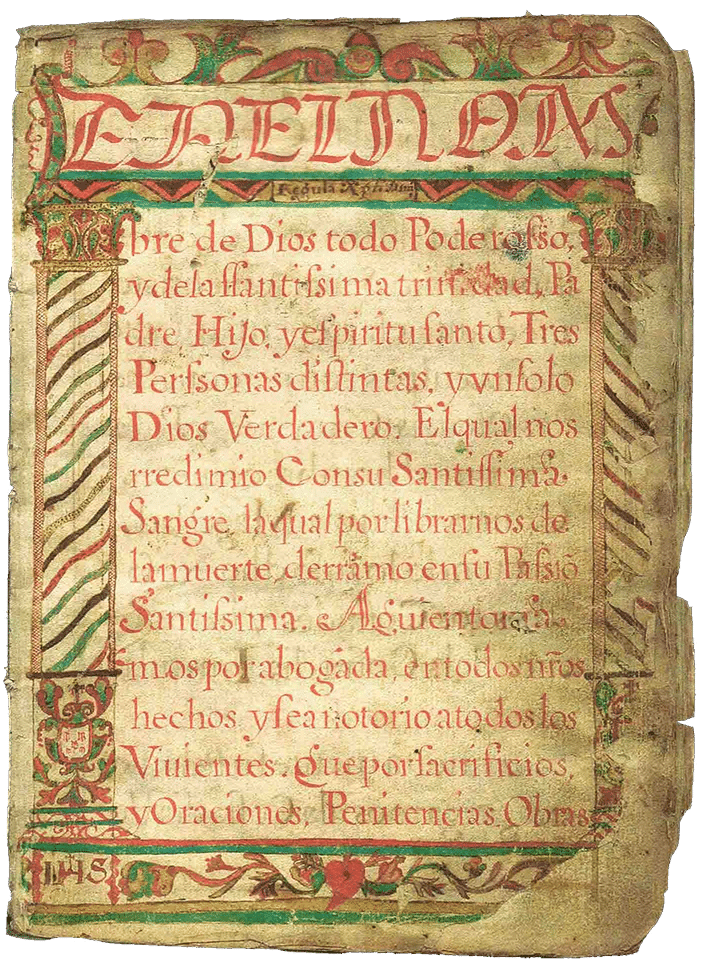 EN EL NOM
Regula
bre de Dios todo Poderosso,
y dela ſſantiſsima trinidad, Pa
dre, Hijo, y eſpiritu ſanto, Tres
Perſsonas diſtintas, y vn ſolo
Dios Verdadero. El qual nos
rredimio Con su Santiſſima
Sangre, la qual por librarnos de
la muerte, derramo en ſu Paſsiõ
Santiſsima. A quien tom̃a
mos por abogada, en todos nr̃os
hechos, y ſea notorio a todos los
Viuientes. Que por ſacrificios,
y Oraciones, Penitencias, Obras
IHS